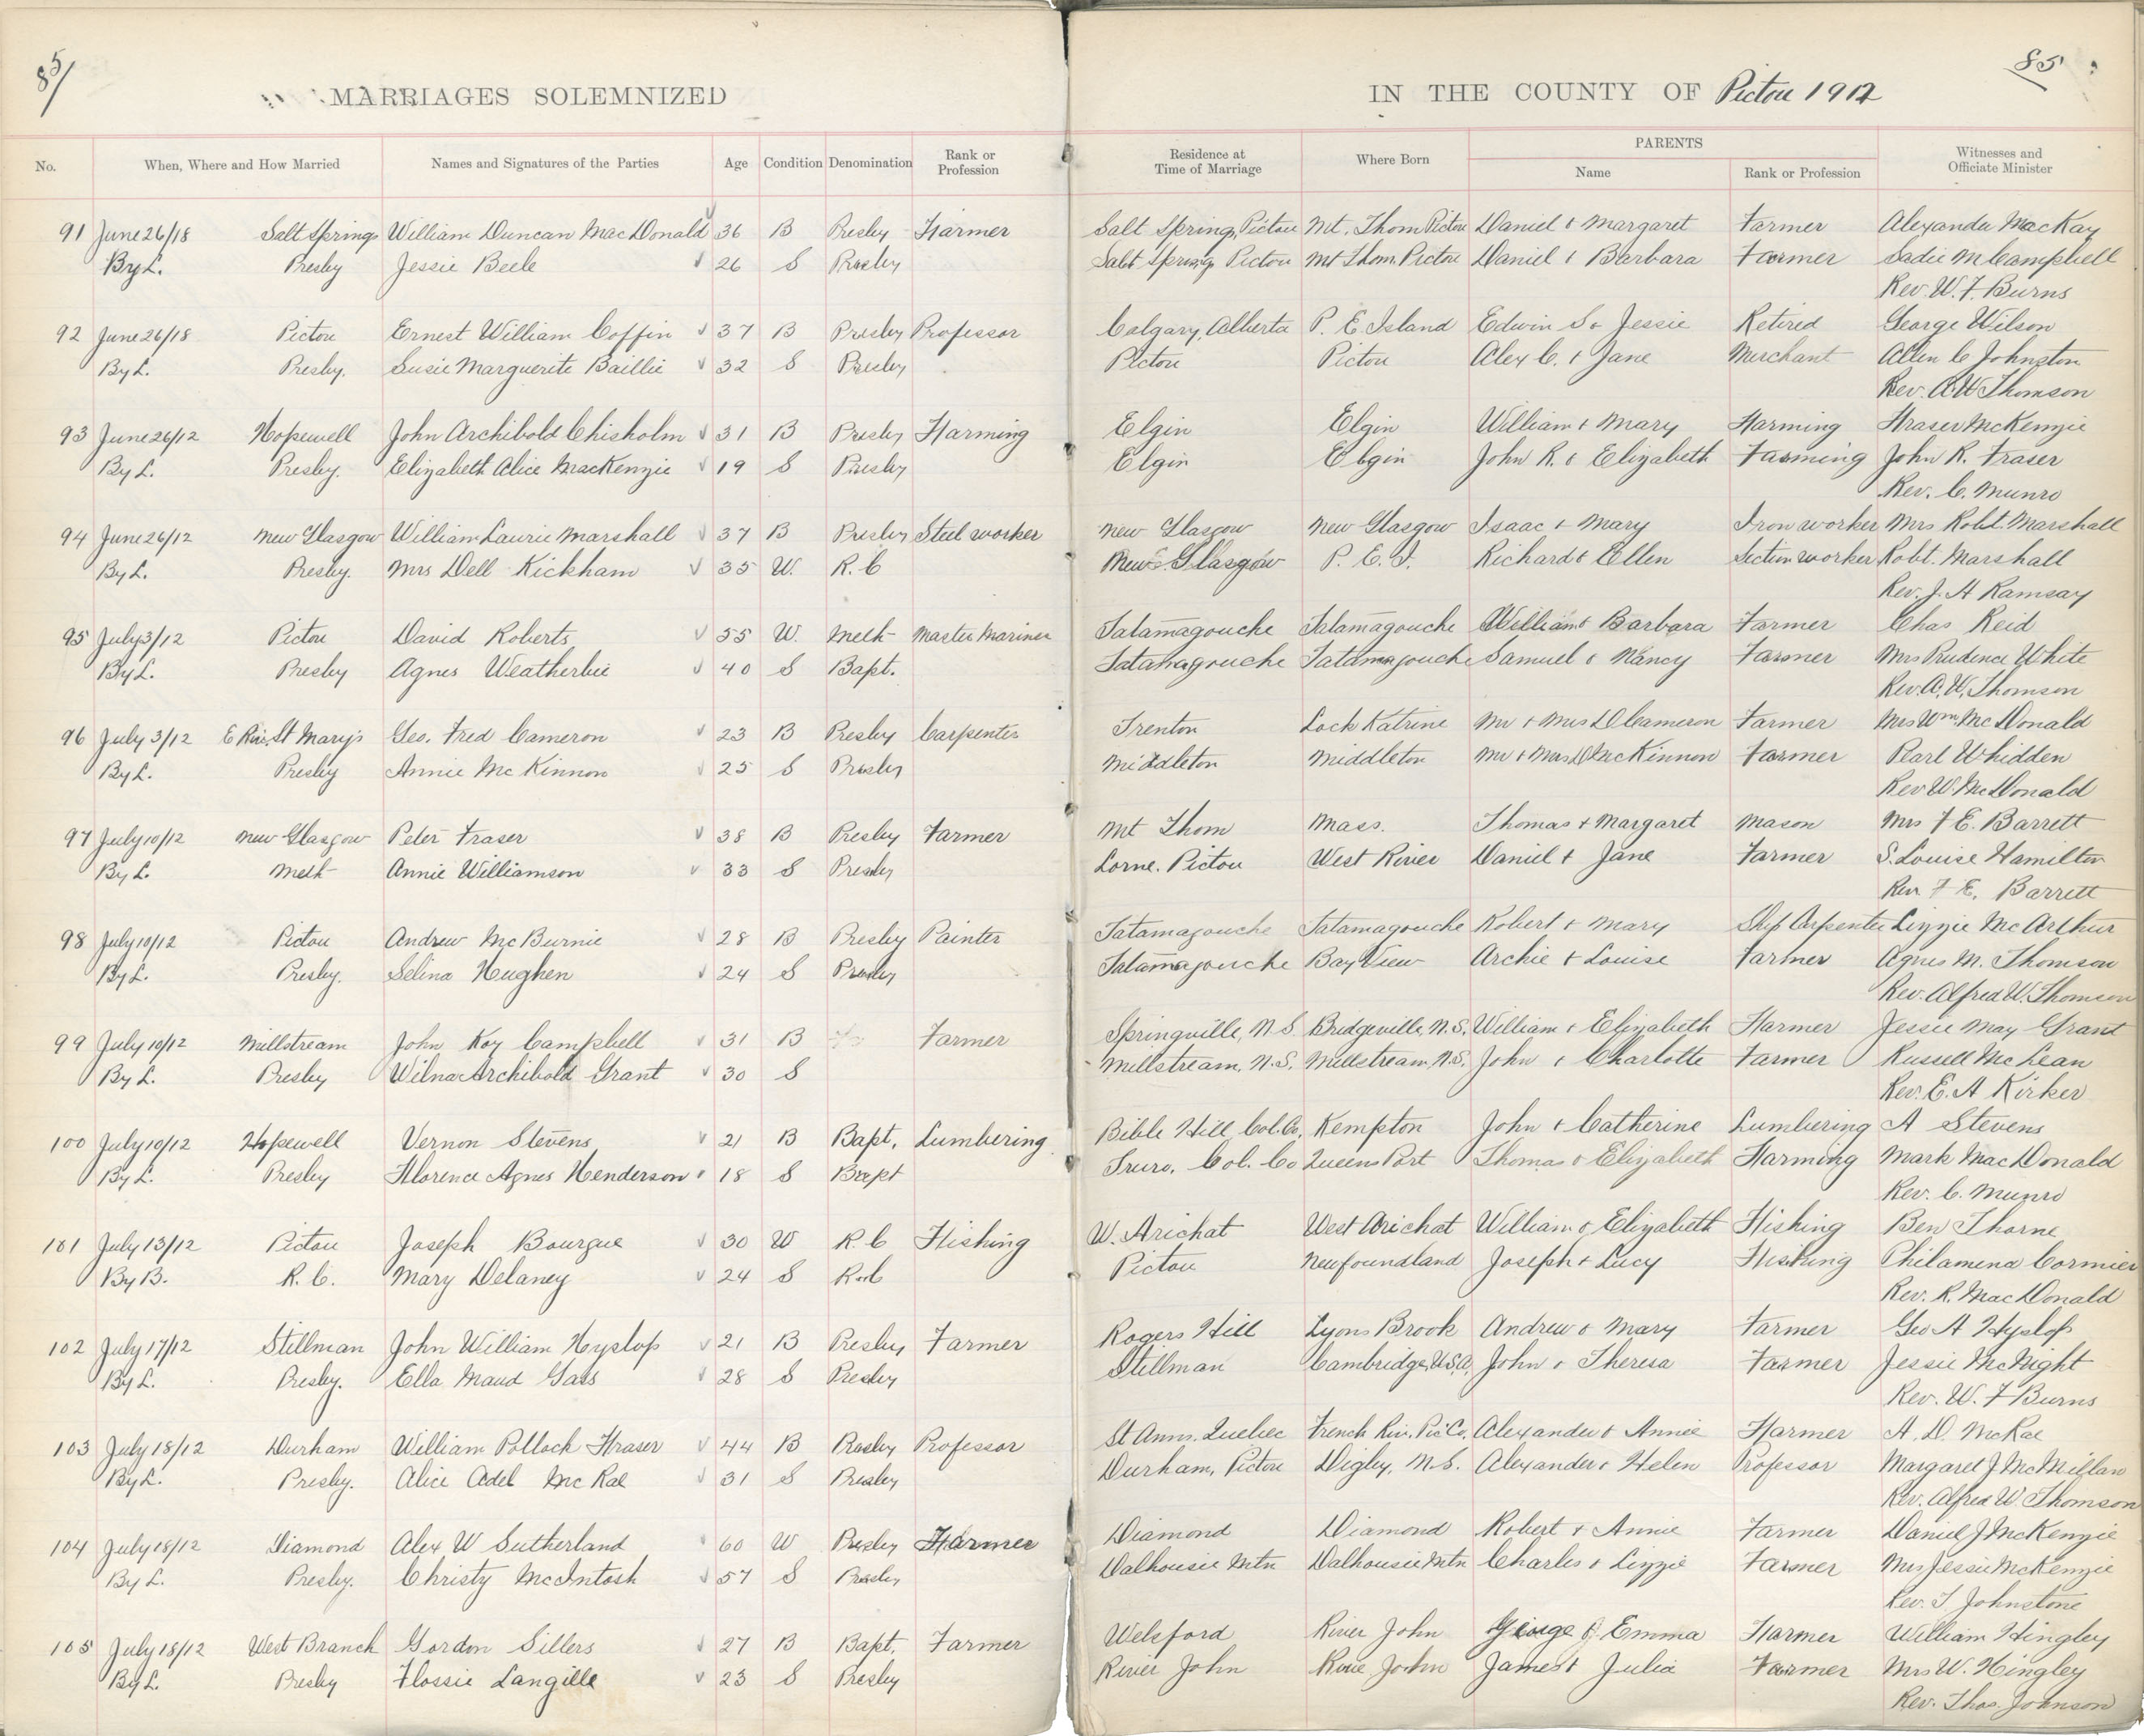 85/
85
MARRIAGES SOLEMNIZED IN THE COUNTY OF Pictou 1912
No. When, Where and How Married Names and Signatures of the Parties Age Condition Denomination Rank or Profession Residence at Time of Marriage Where Born PARENTS Name Rank or Profession Witnesses and Officiate Minister
91 June 26/18 Salt Springs William Duncan MacDonald 36 B Presby Farmer Salt Spring, Pictou Mt. Thom Pictou Daniel & Margaret Farmer Alexander MacKay
By L. Presby Jessie Beele 26 S Presby Salt Spring Pictou Mt Thom Pictou Daniel & Barbara Farmer Sadie M Campbell
Rev. W. F. Burns
92 June 26/18 Pictou Ernest William Coffin 37 B Presby Professor Calgary, Alberta P. E. Island Edwin S & Jessie Retired George Wilson
By L. Presby. Susie Marguerite Baillie 32 S Presby Pictou Pictou Alex C. & Jane Merchant Allen C Johnston
Rev. A W Thomson
93 June 26/12 Hopewell John Archibold Chisholm 31 B Presby Farming Elgin Elgin William & Mary Farming Fraser McKenzie
By L. Presby. Elizabeth Alice MacKenzie 19 S Presby Elgin Elgin John R. & Elizabeth Farming John R. Fraser
Rev. C. Munro
94 June 26/12 New Glasgow William Laurie Marshall 37 B Presby Steel worker New Glasgow New Glasgow Isaac & Mary Iron worker Mrs Robt. Marshall
By L. Presby. Mrs Dell Kickham 35 W. R. C New Glasgow P. E. I. Richard & Ellen Section worker Robt. Marshall
Rev. J. A Ramsay
95 July 3/12 Pictou David Roberts 55 W. Meth Master Mariner Tatamagouche Tatamagouche William & Barbara Farmer Chas Reid
By L. Presby Agnes Weatherbie 40 S Bapt. Tatamagouche Tatamagouche Samuel & Nancy Farmer Mrs Prudence White
Rev. A. W. Thomson
96 July 3/12 E Riv. St Mary's Geo. Fred Cameron 23 B Presby Carpenter Trenton Lock Katrine Mr & Mrs D Cameron Farmer Mrs Wm. McDonald
By L. Presby Annie McKinnon 25 S Presby Middleton Middleton Mr & Mrs D McKinnon Farmer Pearl Whidden
Rev W. McDonald
97 July 10/12 New Glasgow Peter Fraser 38 B Presby Farmer Mt Thom Mass. Thomas & Margaret Mason Mrs F E. Barrett
By L. Meth Annie Williamson 33 S Presby Lorne. Pictou West River Daniel & Jane Farmer S. Louise Hamilton
Rev F E. Barrett
98 July 10/12 Pictou Andrew McBurnie 28 B Presby Painter Tatamagouche Tatamagouche Robert & Mary Ship Carpenter Lizzie McArthur
By L. Presby. Selina Hughen 24 S Presby Tatamagouche Bay View Archie & Louise Farmer Agnes M. Thomson
Rev. Alfred W. Thomson
99 July 10/12 Millstream John Roy Campbell 31 B Farmer Springville, N. S Bridgeville, N. S. William & Elizabeth Farmer Jessie May Grant
By L. Presby Wilna Archibold Grant 30 S Millstream, N. S. Millstream, N. S. John & Charlotte Farmer Russell McLean
Rev. E. A Kirker
100 July 10/12 Hopewell Vernon Stevens 21 B Bapt. Lumbering Bible Hill, Col. Co. Kempton John & Catherine Lumbering A Stevens
By L. Presby Florence Agnes Henderson 18 S Bapt Truro, Col. Co Queens Port Thomas & Elizabeth Farming Mark MacDonald
Rev. C. Munro
101 July 13/12 Pictou Joseph Bourgue 30 W R. C Fishing W. Arichat West Arichat William & Elizabeth Fishing Ben Thorne
By B. R. C. Mary Delaney 24 S R. C Pictou Newfoundland Joseph & Lucy Fishing Philamena Cormier
Rev. R. MacDonald
102 July 17/12 Stillman John William Hyslop 21 B Presby Farmer Rogers Hill Lyons Brook Andrew & Mary Farmer Geo A Hyslop
By L. Presby. Ella Maud Gass 28 S Presby Stillman Cambridge, U.S.A. John & Theresa Farmer Jessie McNight
Rev. W. F Burns
103 July 18/12 Durham William Pollock Fraser 44 B Presby Professor St Ann. Quebec French Riv. Pic Co. Alexander & Annie Farmer A. D. McRae
By L. Presby. Alice Adel McRae 31 S Presby Durham, Pictou Digby, N. S. Alexander & Helen Professor Margaret J McMillan
Rev. Alfred W. Thomson
104 July 18/12 Diamond Alex W Sutherland 60 W Presby Farmer Diamond Diamond Robert & Annie Farmer Daniel J McKenzie
By L. Presby. Christy McIntosh 57 S Presby Dalhousie Mtn Dalhousie Mtn Charles & Lizzie Farmer Mrs Jessie McKenzie
Rev. T Johnstone
105 July 18/12 West Branch Gordon Sillers 27 B Bapt. Farmer Welsford River John George & Emma Farmer William Hingley
By L. Presby Flossie Langille 23 S Presby River John River John James & Julia Farmer Mrs W. Hingley
Rev. Thos. Johnson